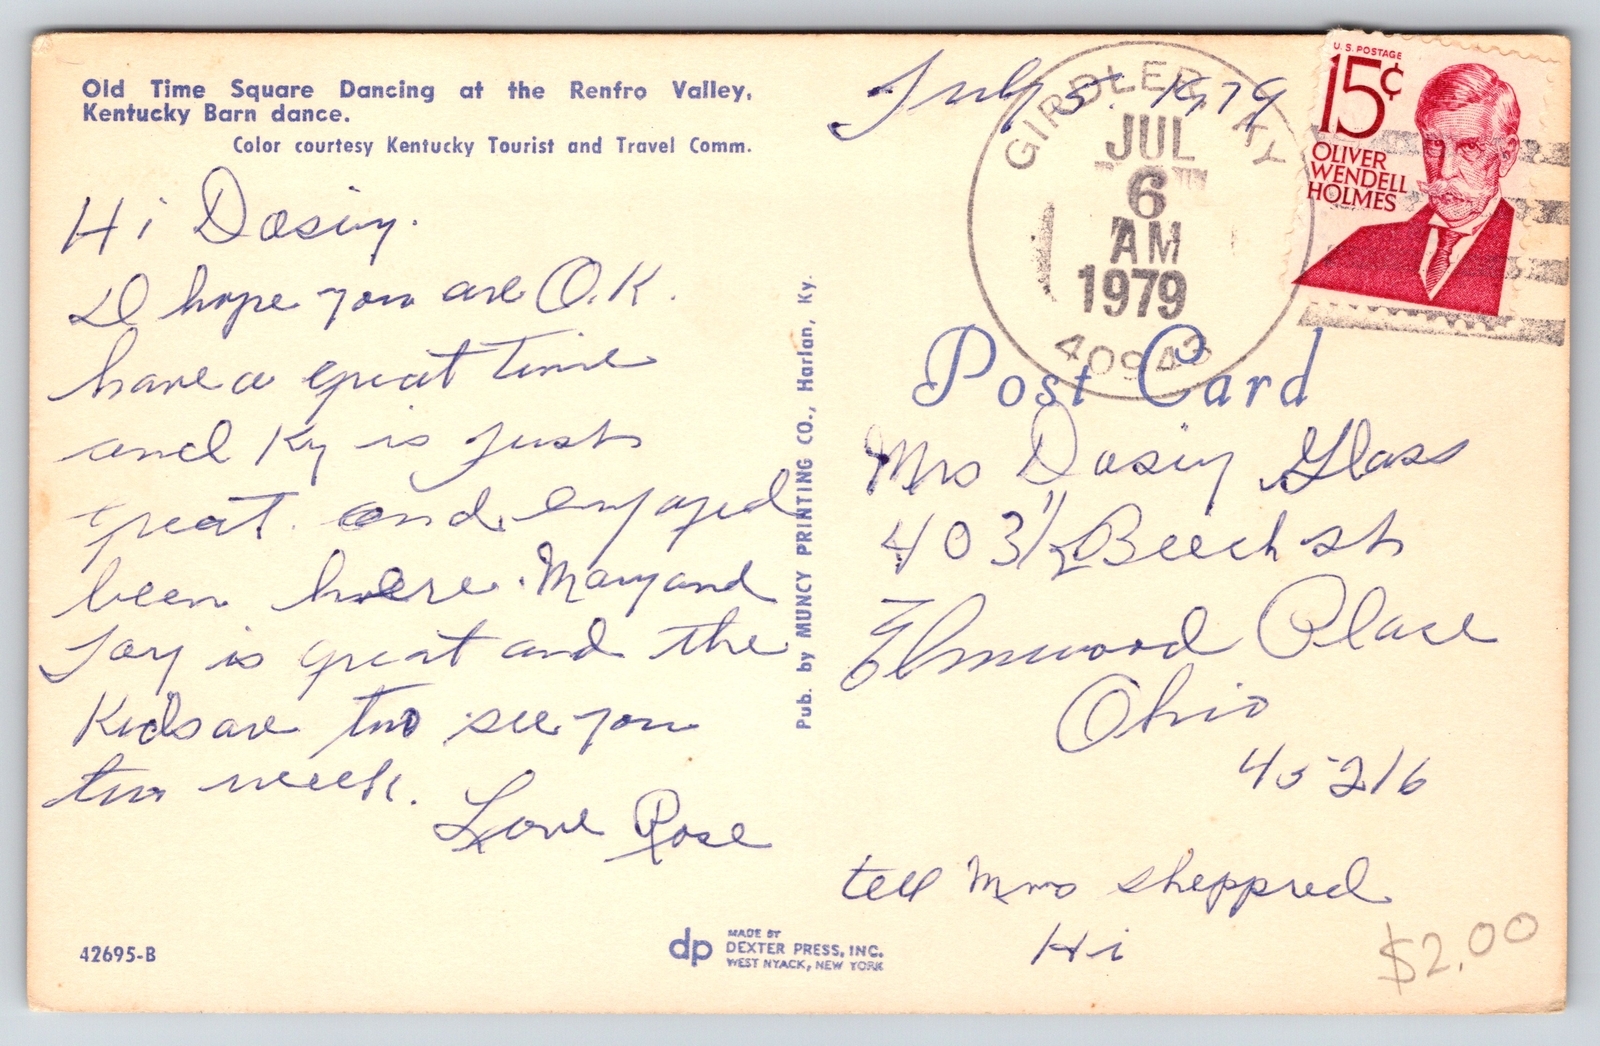 Old Time Square Dancing at the Renfro Valley,
Kentucky Barn dance.
Color courtesy Kentucky Tourist and Travel Comm.
Hi Dasiy.
I hope you are O.K.
have a great time
and Ky is just
great. and enjoyed
been here. Mary and
Jay is great and the
Kids are two see you
two week.
Love Rose
42695-B
Pub. by MUNCY PRINTING CO., Harlan, Ky.
dp
MADE BY
DEXTER PRESS, INC.
WEST NYACK, NEW YORK
July 5. 1979
GIRDLER, KY
JUL
6
AM
1979
40943
U.S. POSTAGE
15¢
OLIVER
WENDELL
HOLMES
Post Card
Mrs Dasiy Glass
403 1/2 Beech st
Elmwood Place
Ohio
45216
tell Mrs sheppred
Hi
$2.00